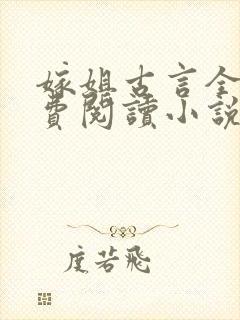 嫁姐古言全
費閱讀小說
度若飛